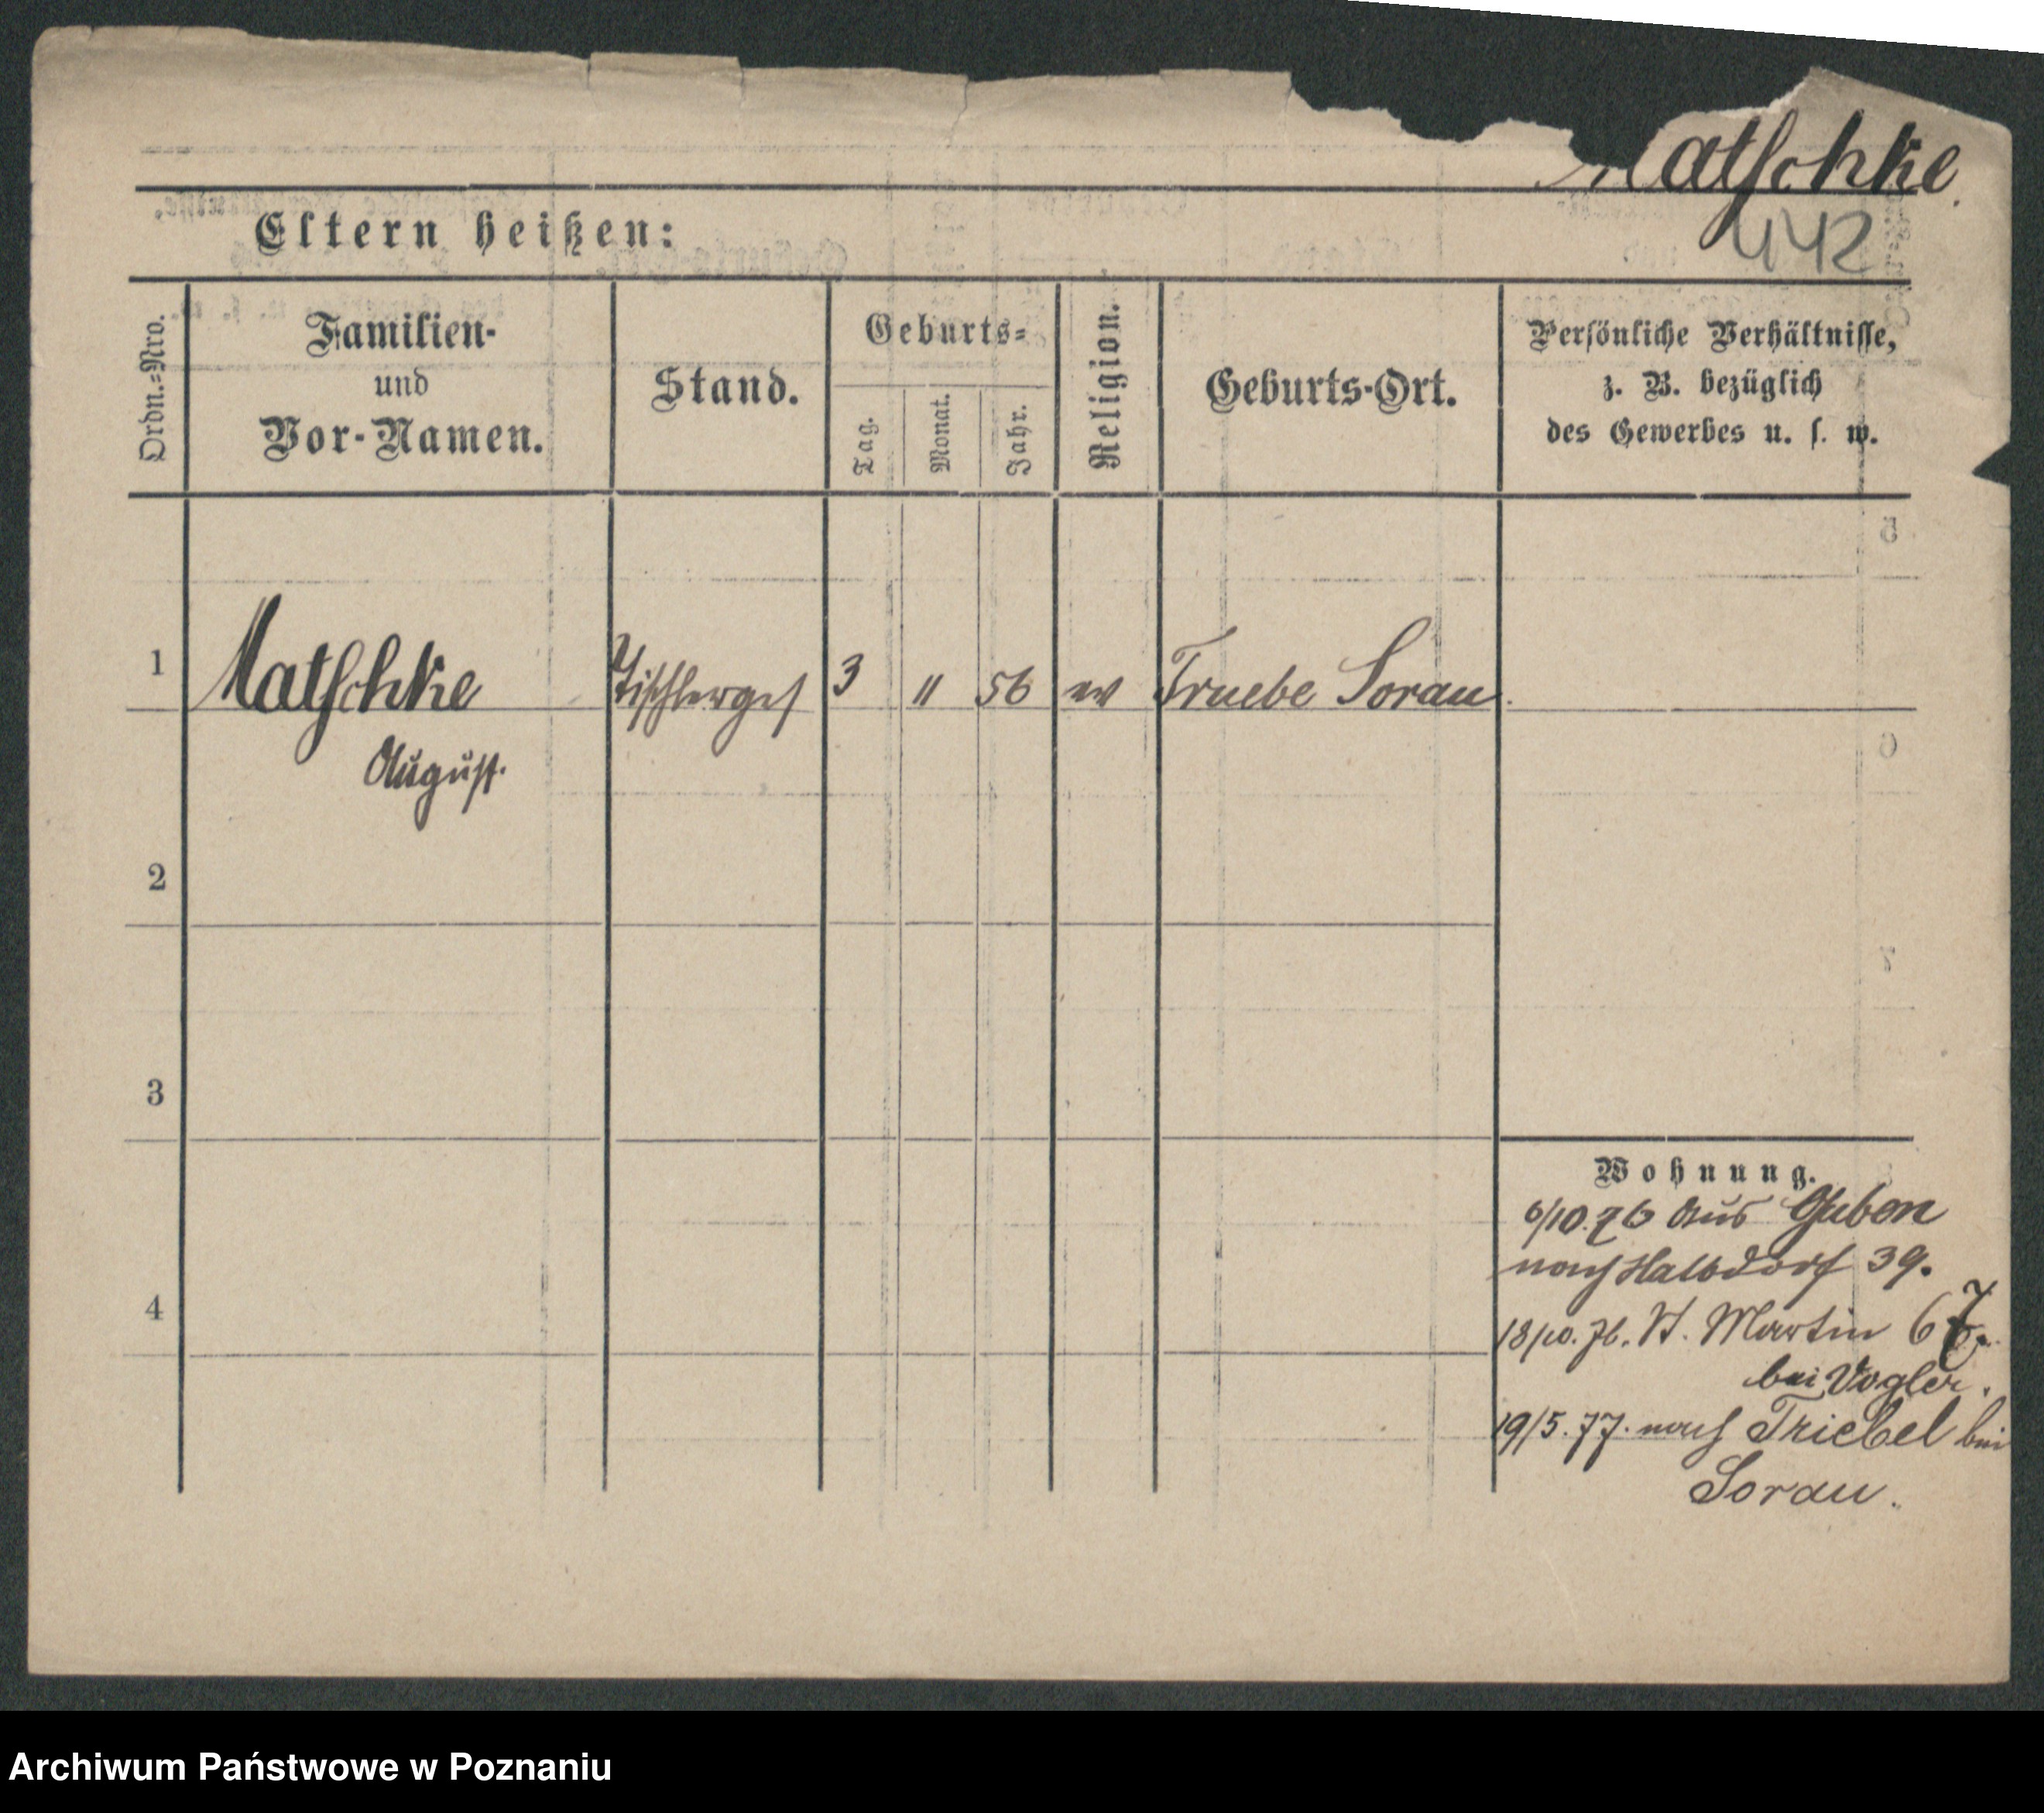 Matschke
442
Eltern heißen:
Ordn.=Nro.
Familien-
und
Vor-Namen.
Stand.
Geburts=
Tag.
Monat.
Jahr.
Religion.
Geburts-Ort.
Persönliche Verhältnisse,
z. B. bezüglich
des Gewerbes u. s. w.
1 Matschke Tischlerges 3 11 56 ev Truebe Sorau.
August.
2
3
4
Wohnung.
6/10.76 aus Guben
nach Halbdorf 39.
18/10.76. St. Martin 67.
bei Vogler.
19/5.77. nach Triebel bei
Sorau.
Archiwum Państwowe w Poznaniu